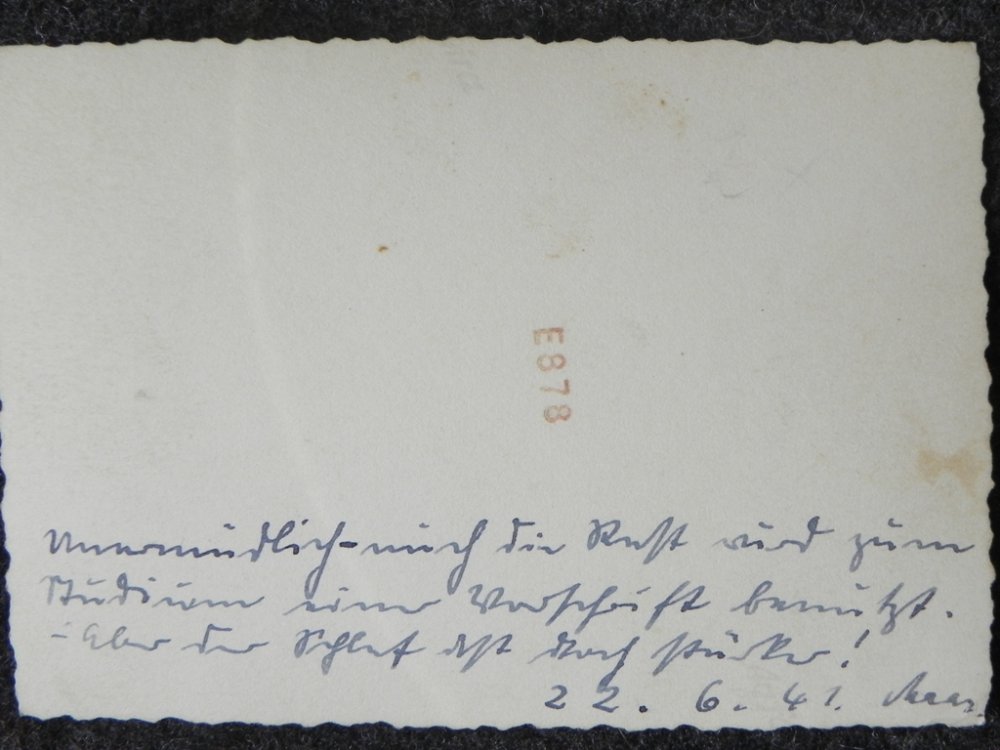 E878
Unermüdlich - auch die Rast wird zum
Studium einer Vorschrift benützt.
- Aber der Schlaf ist doch stärker!
22. 6. 41.